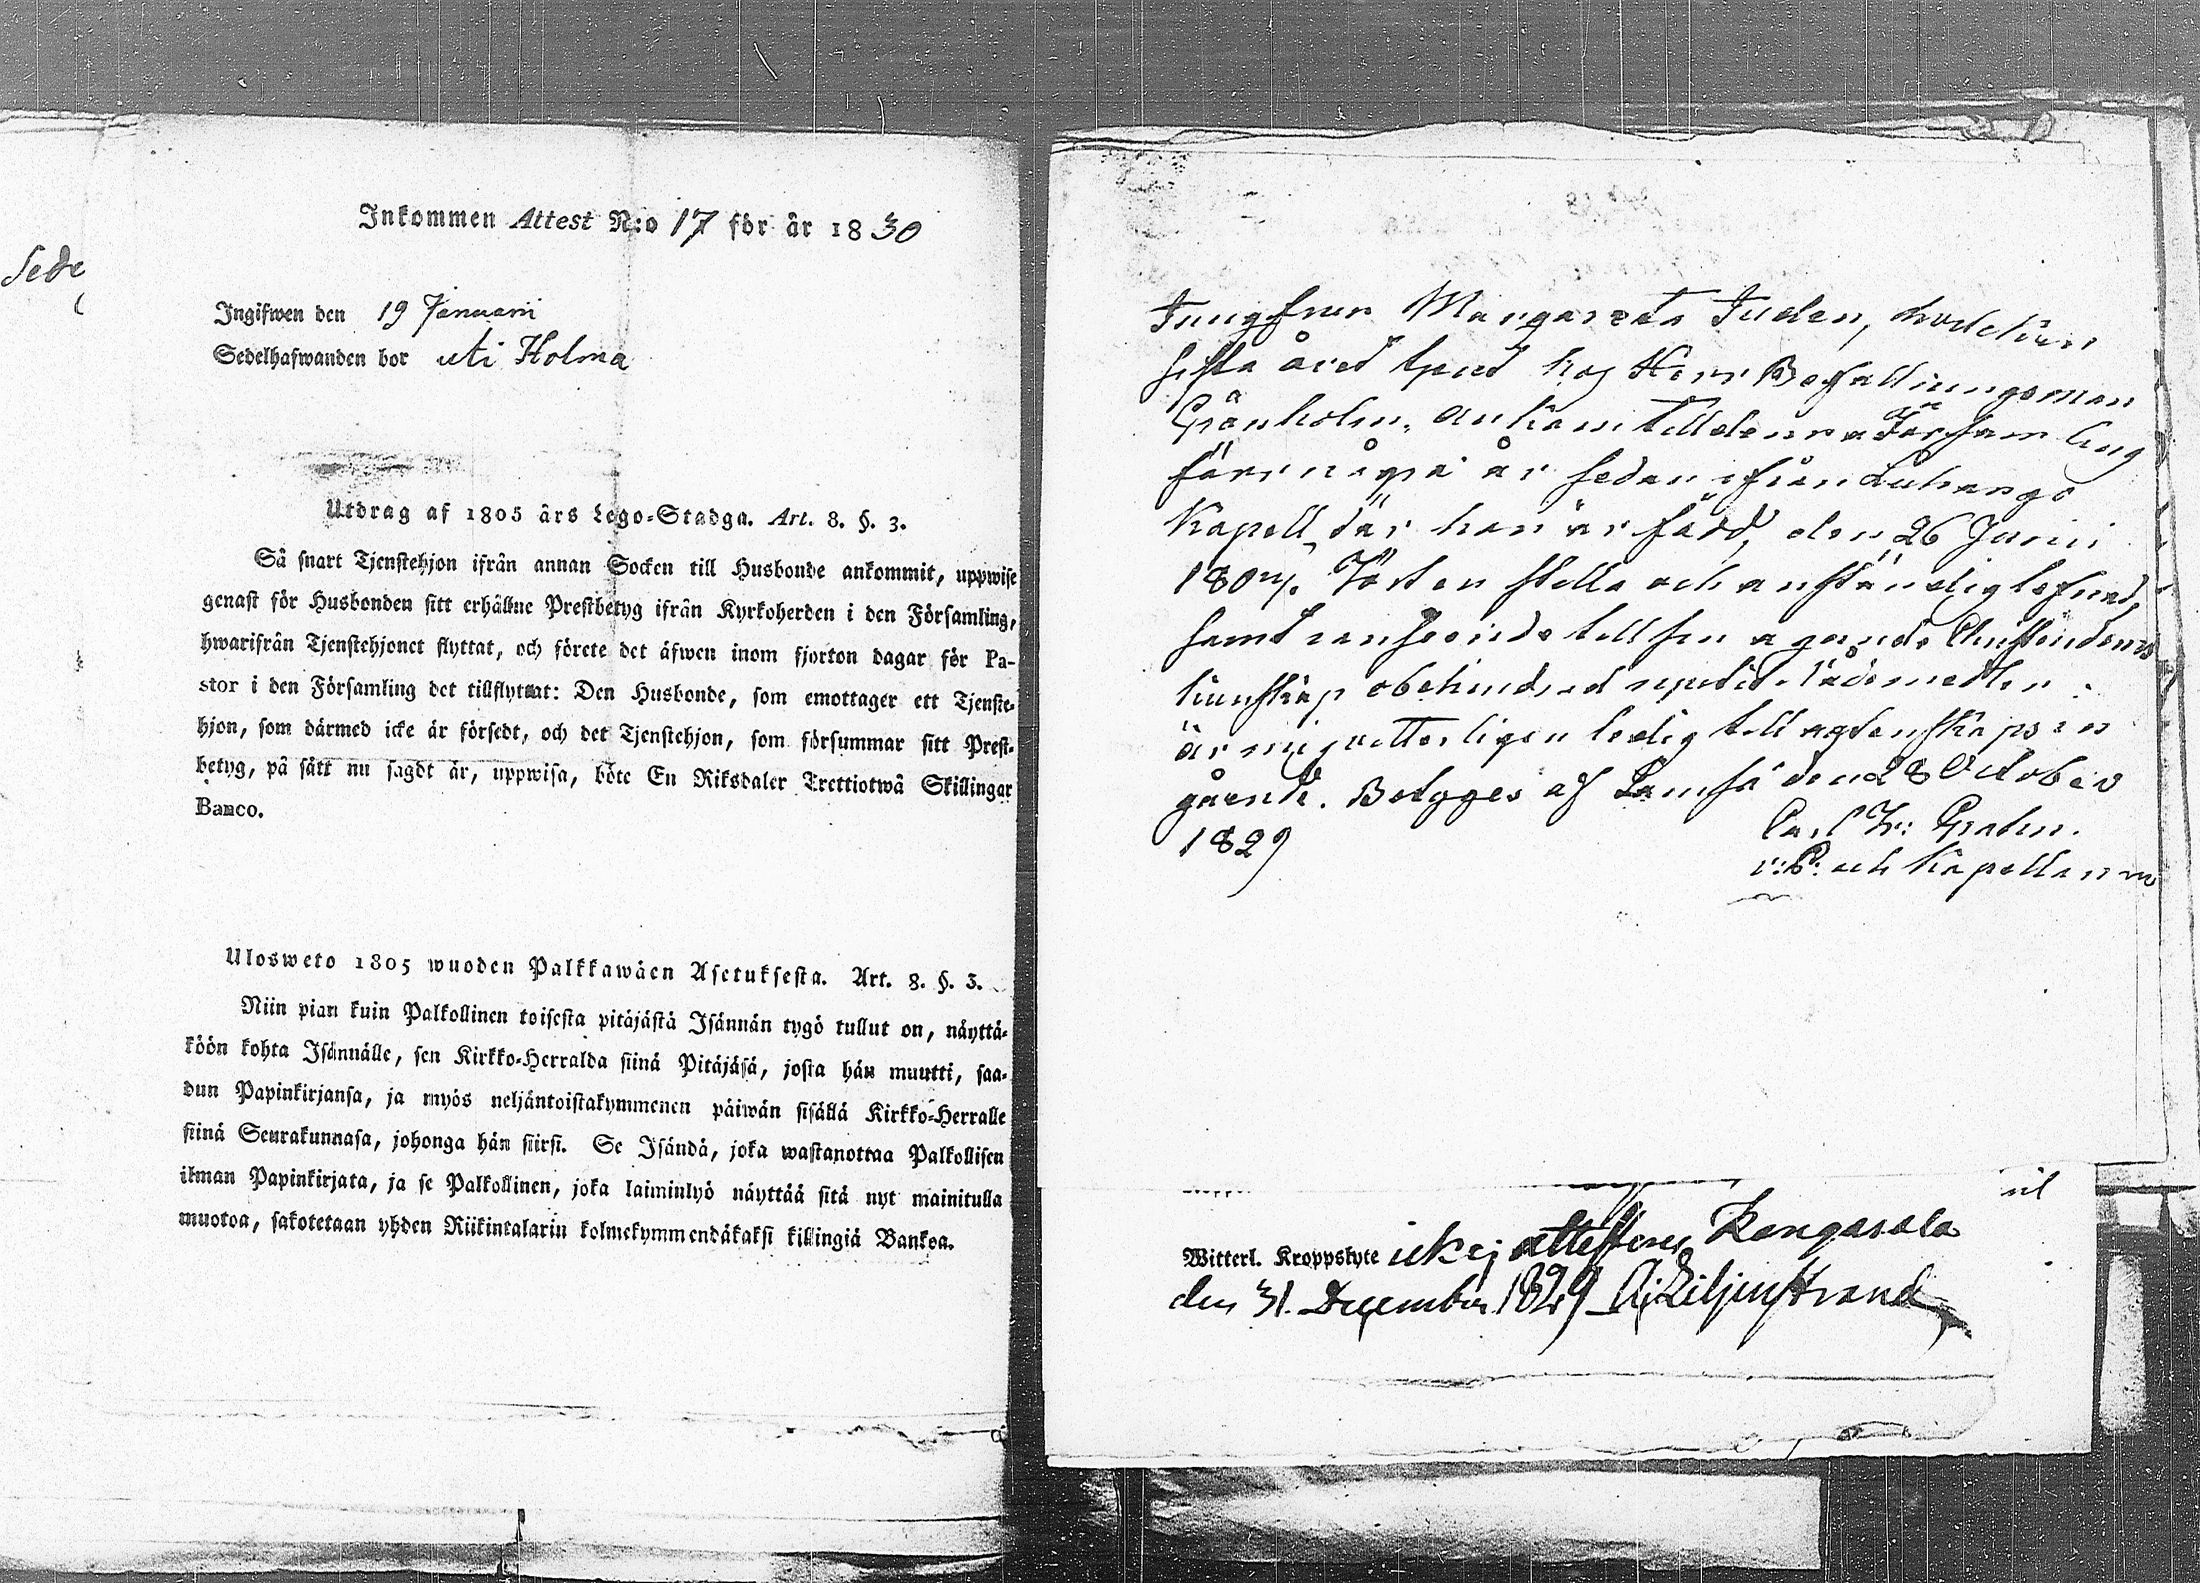 Inkommen Attest N:o 17 för år 1830
Sede
Ingifwen den 19 Januarii
Sedelhafwanden bor uti Holma
Utdrag af 1805 års Lego-Stadga. Art. 8. §. 3.
Så snart Tjenstehjon ifrån annan Socken till Husbonde ankommit, uppwise
genast för Husbonden sitt erhållne Prestbetyg ifrån Kyrkoherden i den Församling,
hwarifrån Tjenstehjonet flyttat, och förete det äfwen inom fjorton dagar för Pa-
stor i den Församling det tillflyttat: Den Husbonde, som emottager ett Tjenste-
hjon, som därmed icke är försedt, och det Tjenstehjon, som försummar sitt Prest-
betyg, på sätt nu sagdt är, uppwisa, böte En Riksdaler Trettiotwå Skillingar
Banco.
Ulosweto 1805 wuoden Palkkawäen Asetuksesta. Art. 8. §. 3.
Niin pian kuin Palkollinen toisesta pitäjästä Isännän tygö tullut on, näyttä-
köön kohta Isännälle, sen Kirkko-Herralda siinä Pitäjäsä, josta hän muutti, saa-
dun Papinkirjansa, ja myös neljäntoistakymmenen päiwän sisällä Kirkko-Herralle
siinä Seurakunnasa, johonga hän siirsi. Se Isändä, joka wastanottaa Palkollisen
ilman Papinkirjata, ja se Palkollinen, joka laiminlyö näyttää sitä nyt mainitulla
muotoa, sakotetaan yhden Riikintalarin kolmekymmendäkaksi killingiä Bankoa.
Jungfrun Margareta Juden, hvilken
sista året tjent hos Herr Befallningsman
Grönholm, ankom till denna Församling
förr några år sedan ifrån Luhango
Kapell, där hon är född, den 26 Junii
1804. Fört en stilla och anständig lefnad,
samt anseende till sin ägande Christendoms
kunskap obehindrad nyttit Nådemedlen.
är mig vetterligen ledig till ägtenskaps in
gående. Betygges af Jämsä den 28 October
1829
Carl Fr: Grahn.
v:P: och Kapellan
Witterl. Kroppslyte icke; attesterar Kangasala
den 31. December 1829 Liljenstrand